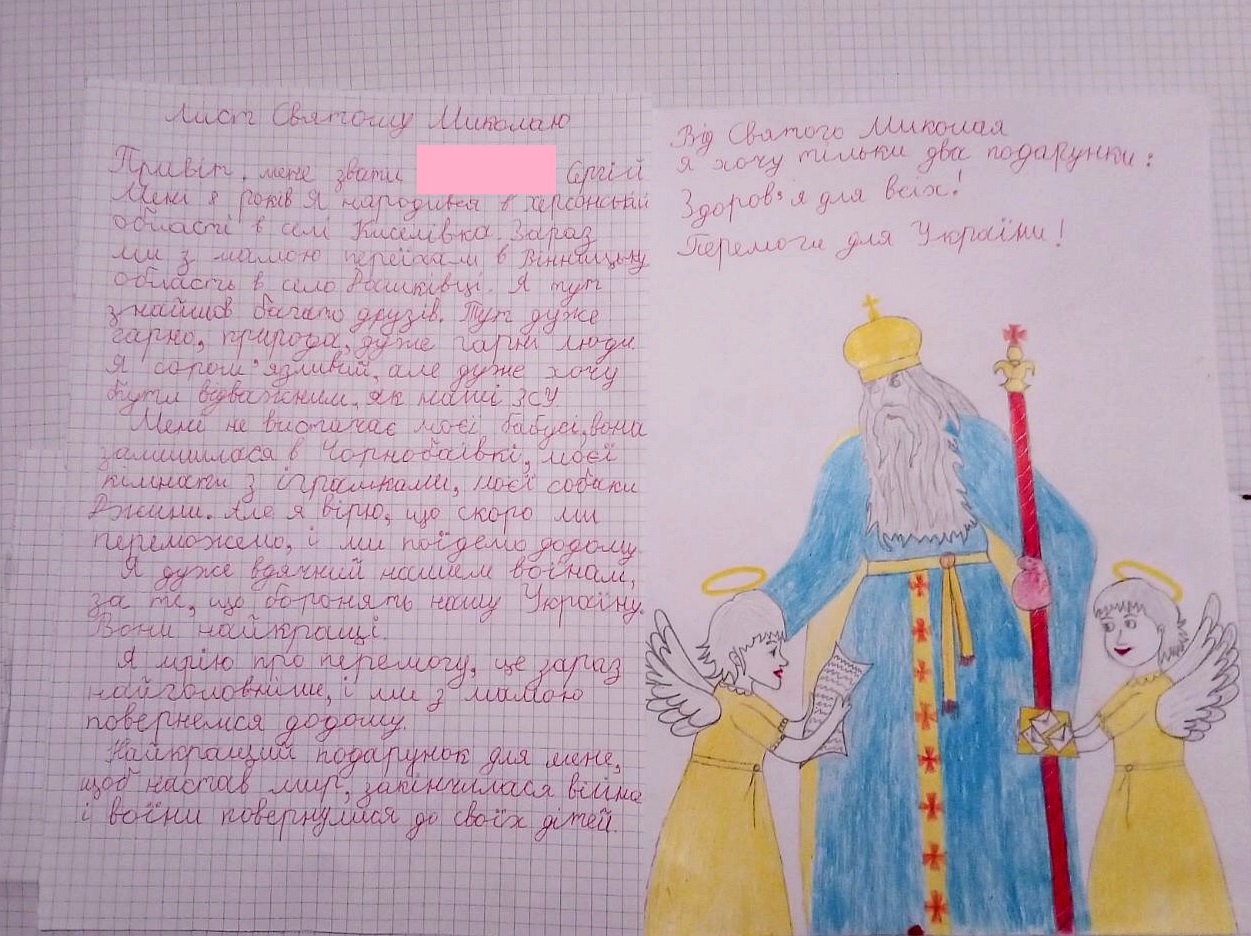 Лист Святому Миколаю
Привіт, мене звати Сергій
Мені 8 років Я народився в херсонській
області в селі Киселівка. Зараз
ми з мамою переїхали в Вінницьку
область в село Рашківці. Я тут
знайшов багато друзів. Тут дуже
гарно, природа, дуже гарні люди
Я сором'язливий, але дуже хочу
бути відважним, як наші ЗСУ
Мені не вистачає моєї бабусі, вона
залишилася в Чорнобаївкі, моєї
кімнати з іграшками, моєї собаки
Джини. Але я вірю, що скоро ми
переможемо, і ми поїдемо додому
Я дуже вдячний нашим воїнам,
за те, що боронять нашу Україну.
Вони найкращі.
Я мрію про перемогу, це зараз
найголовніше, і ми з мамою
повернемся додому.
Найкращий подарунок для мене,
щоб настав мир, закінчилася війна
і воїни повернулися до своїх дітей.
Від Святого Миколая
я хочу тільки два подарунки:
Здоров'я для всіх!
Перемоги для України!